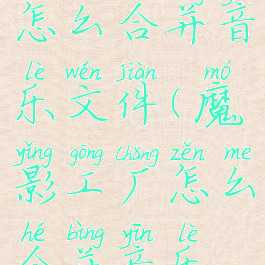 怎么合并音
lè wén jiàn mó
乐文件(魔
yǐng gōng chǎng zěn me
影工厂怎么
hé bìng yīn lè
合并音乐